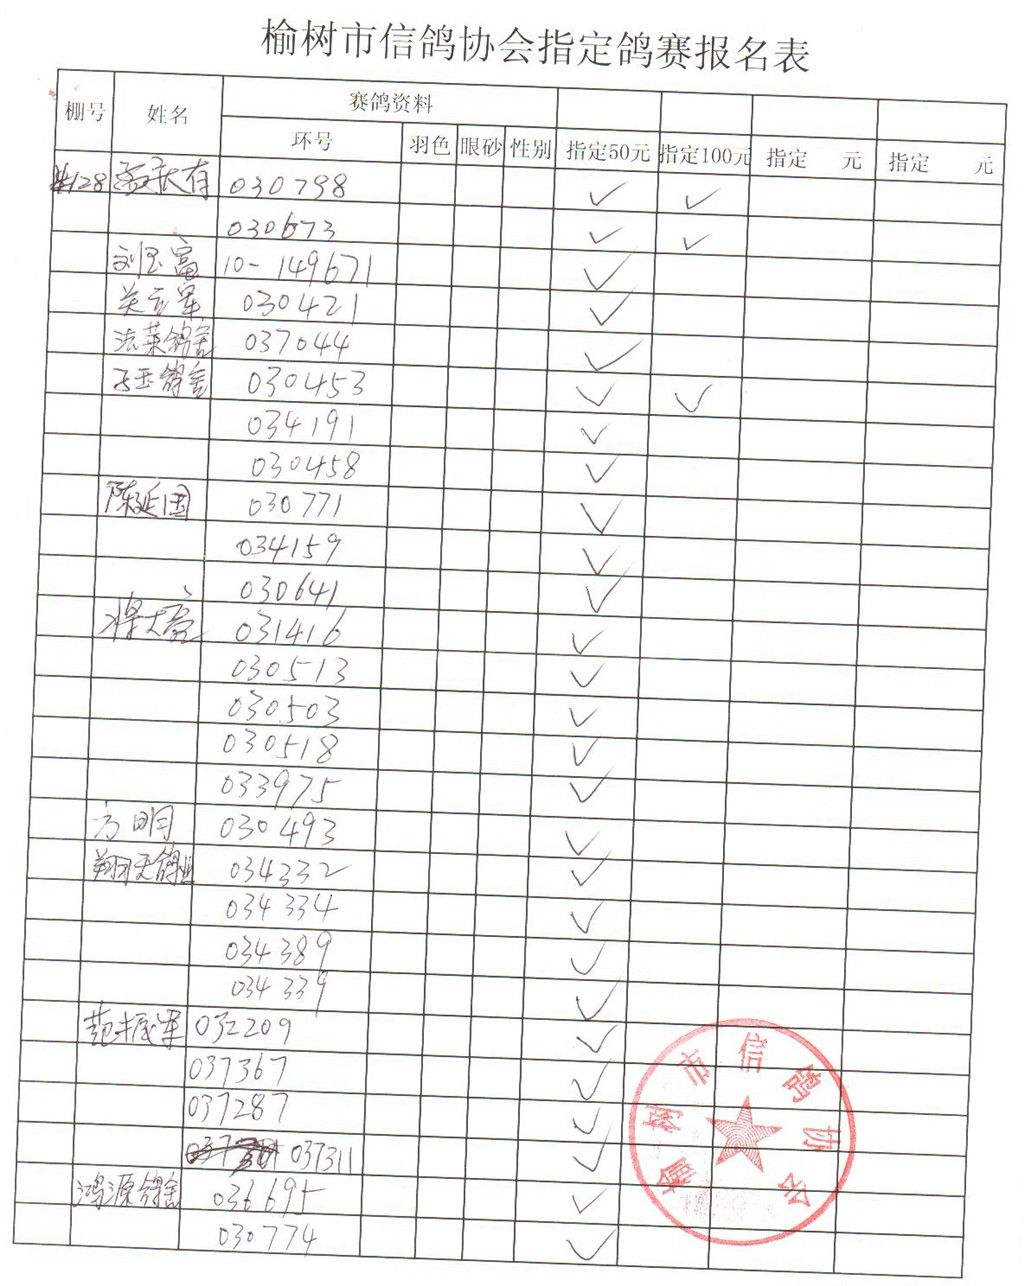 榆树市信鸽协会指定鸽赛报名表
棚号 姓名 赛鸽资料
环号 羽色 眼砂 性别 指定50元 指定100元 指定 元 指定 元
128 030798 ✓ ✓
030673 ✓ ✓
刘玉富 10-149671 ✓
关立军 030421 ✓
法莱鸽舍 037044 ✓
玉鸽舍 030453 ✓ ✓
034191 ✓
030458 ✓
陈延国 030771 ✓
034159 ✓
030641 ✓
031416 ✓
030513 ✓
030503 ✓
030518 ✓
033975 ✓
方明 030493 ✓
翔天鸽业 034332 ✓
034334 ✓
034389 ✓
034339 ✓
范振军 032209 ✓
037367 ✓
037287 ✓
037311 ✓
鸿源鸽舍 036695 ✓
030774 ✓
榆树市信鸽协会